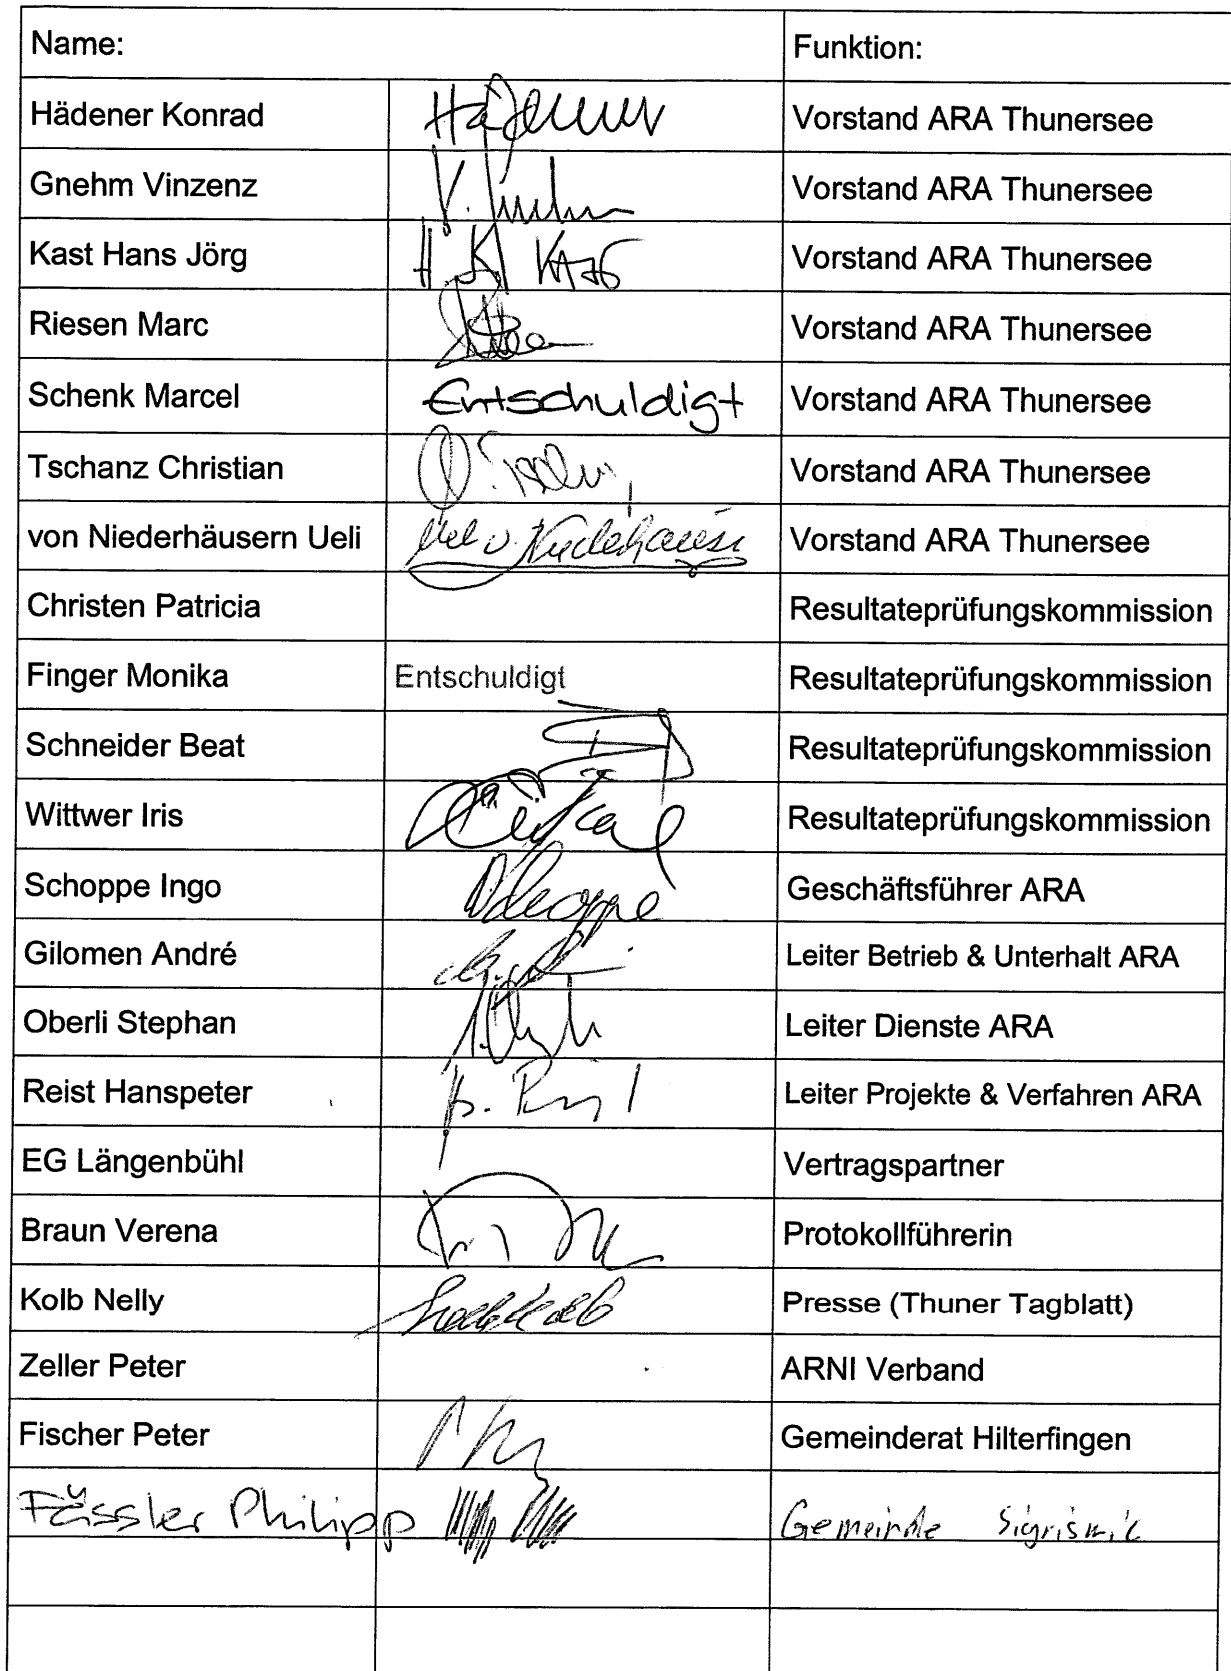 Name: Funktion:
Hädener Konrad Hädener Vorstand ARA Thunersee
Gnehm Vinzenz V. Vorstand ARA Thunersee
Kast Hans Jörg H J Kast Vorstand ARA Thunersee
Riesen Marc Vorstand ARA Thunersee
Schenk Marcel Entschuldigt Vorstand ARA Thunersee
Tschanz Christian Vorstand ARA Thunersee
von Niederhäusern Ueli Ueli v. Niederhäusern Vorstand ARA Thunersee
Christen Patricia Resultateprüfungskommission
Finger Monika Entschuldigt Resultateprüfungskommission
Schneider Beat Resultateprüfungskommission
Wittwer Iris Resultateprüfungskommission
Schoppe Ingo Schoppe Geschäftsführer ARA
Gilomen André Leiter Betrieb & Unterhalt ARA
Oberli Stephan Leiter Dienste ARA
Reist Hanspeter Leiter Projekte & Verfahren ARA
EG Längenbühl Vertragspartner
Braun Verena Protokollführerin
Kolb Nelly Presse (Thuner Tagblatt)
Zeller Peter ARNI Verband
Fischer Peter Gemeinderat Hilterfingen
Fässler Philipp Gemeinde Sigriswil